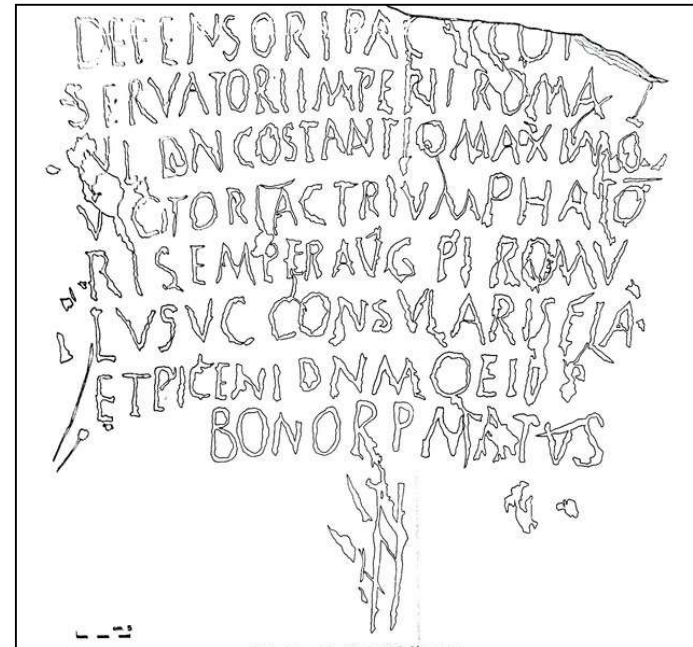 DEFENSORI PACIS CUI
SERVATORI IMPERI ROMA
DN COSTANTIO MAXIMO
VICTORI AC TRIVMPHATO
RI SEMPER AVG PI ROMV
LVS VC CONSVLARIS FLA
ET PICENI DNMQ EIVS
BONO R P MATVS
cm. 5